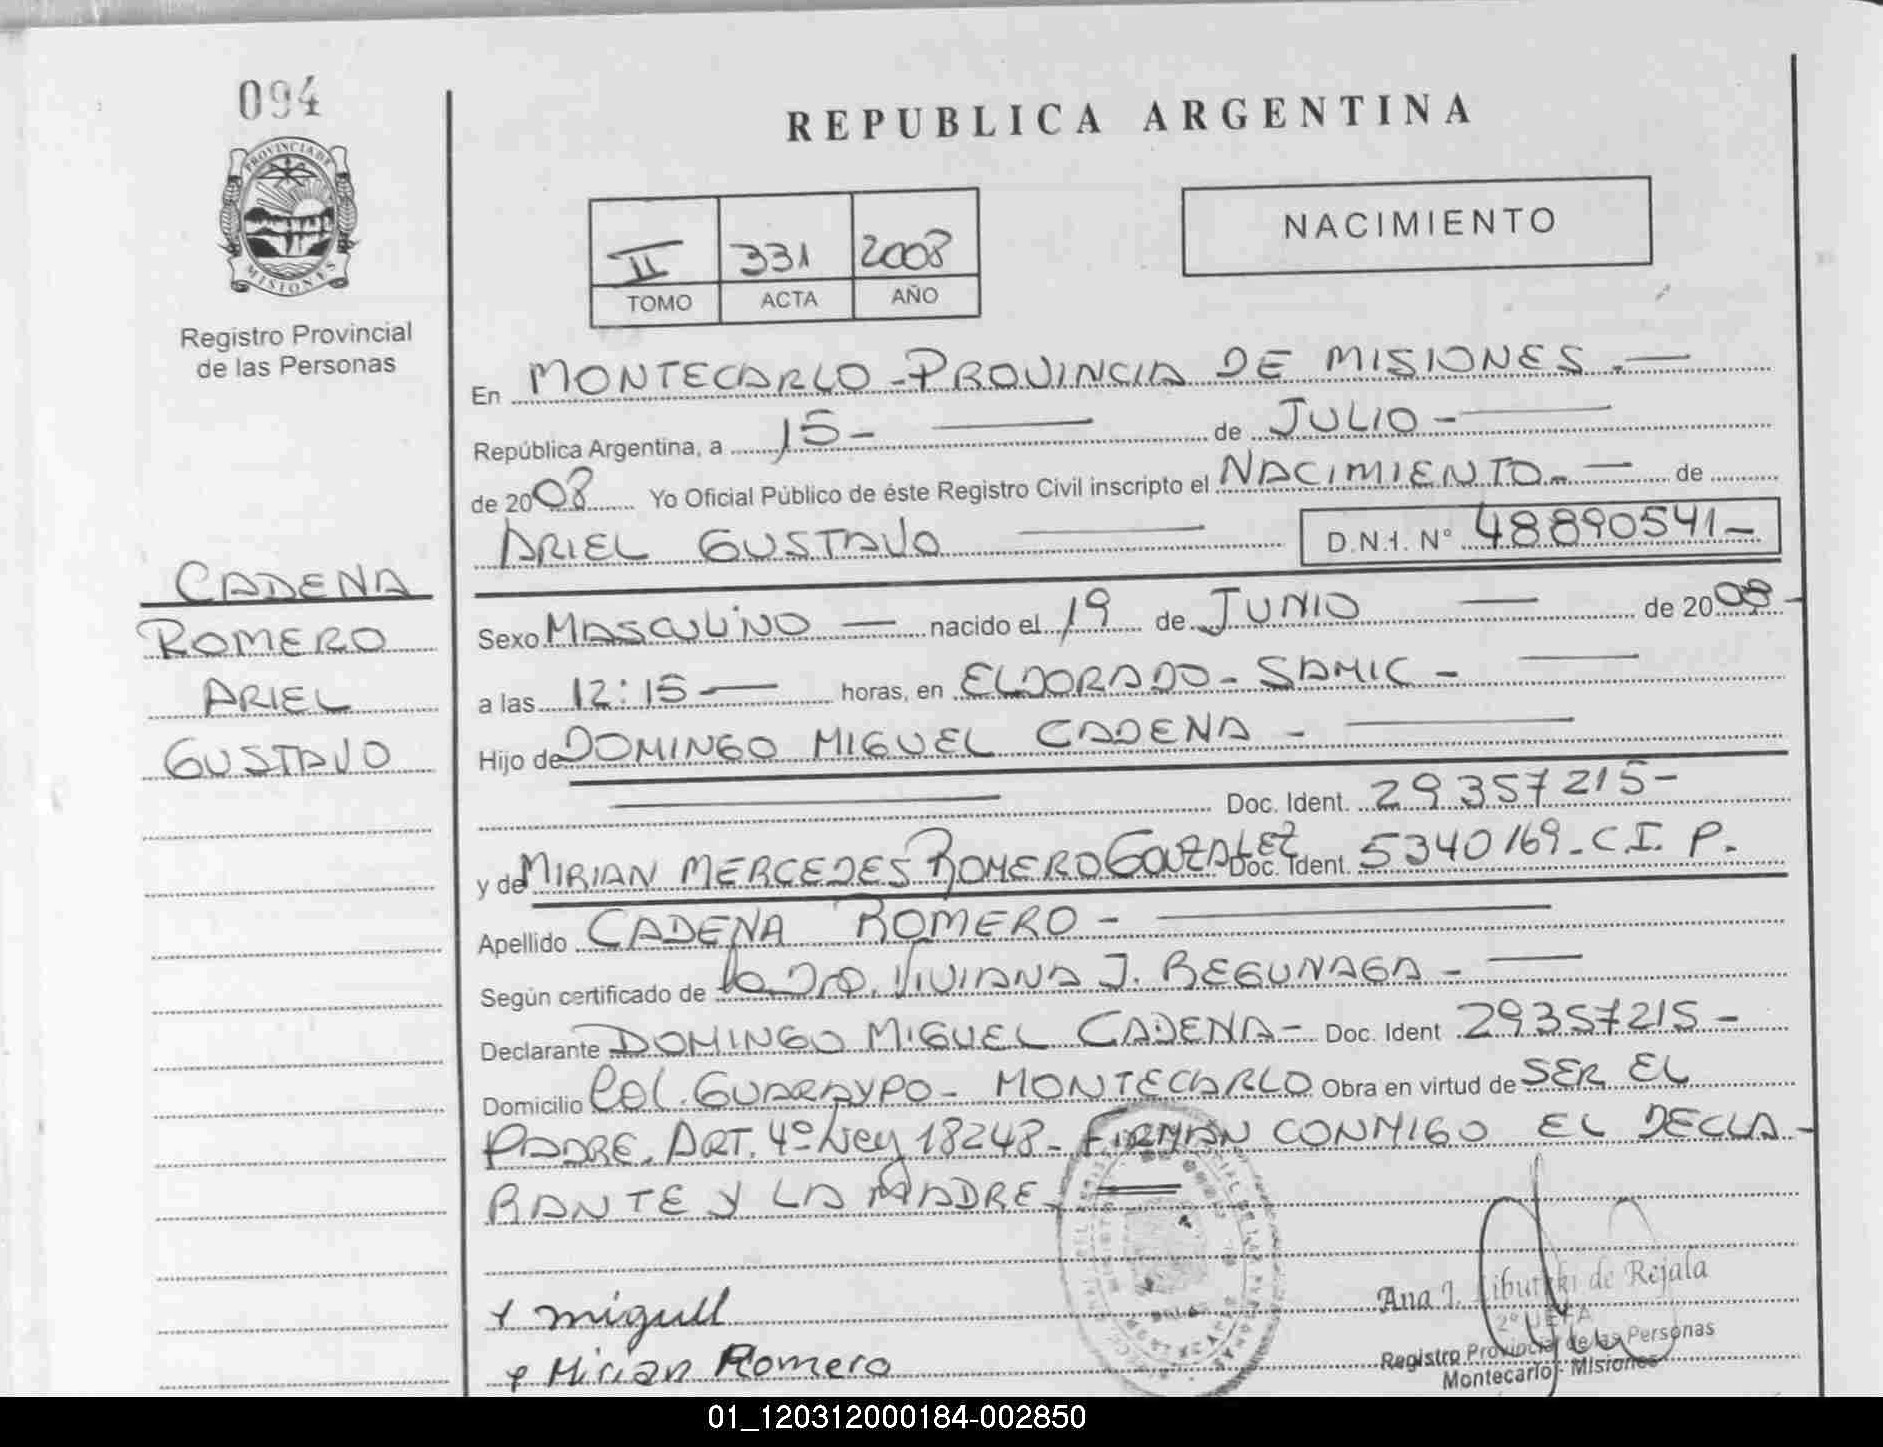 094
PROVINCIA DE
MISIONES
Registro Provincial
de las Personas
CADENA
ROMERO
ARIEL
GUSTAVO
REPUBLICA ARGENTINA
II 331 2008
TOMO ACTA AÑO
NACIMIENTO
En MONTECARLO - PROVINCIA DE MISIONES.—
República Argentina, a 15- — de JULIO - —
de 2008 Yo Oficial Público de éste Registro Civil inscripto el NACIMIENTO.- — de
ARIEL GUSTAVO — D.N.I. N° 48890541-
Sexo MASCULINO — nacido el 19 de JUNIO — de 2008-
a las 12:15 — horas, en ELDORADO - SAMIC - —
Hijo de DOMINGO MIGUEL CADENA - —
— Doc. Ident. 29357215-
y de MIRIAN MERCEDES ROMERO GONZALEZ Doc. Ident. 5340169-C.I. P.
Apellido CADENA ROMERO - —
Según certificado de la Dra. VIVIANA J. BEGUNAGA - —
Declarante DOMINGO MIGUEL CADENA- Doc. Ident 29357215 -
Domicilio COL. GUARAYPO - MONTECARLO Obra en virtud de SER EL
PADRE. ART. 4º Ley 18248- FIRMAN CONMIGO EL DECLA-
RANTE Y LA MADRE- —
miguel
Mirian Romero
Ana I. de Rejala
Registro Provincial de las Personas
Montecarlo - Misiones
01_120312000184-002850